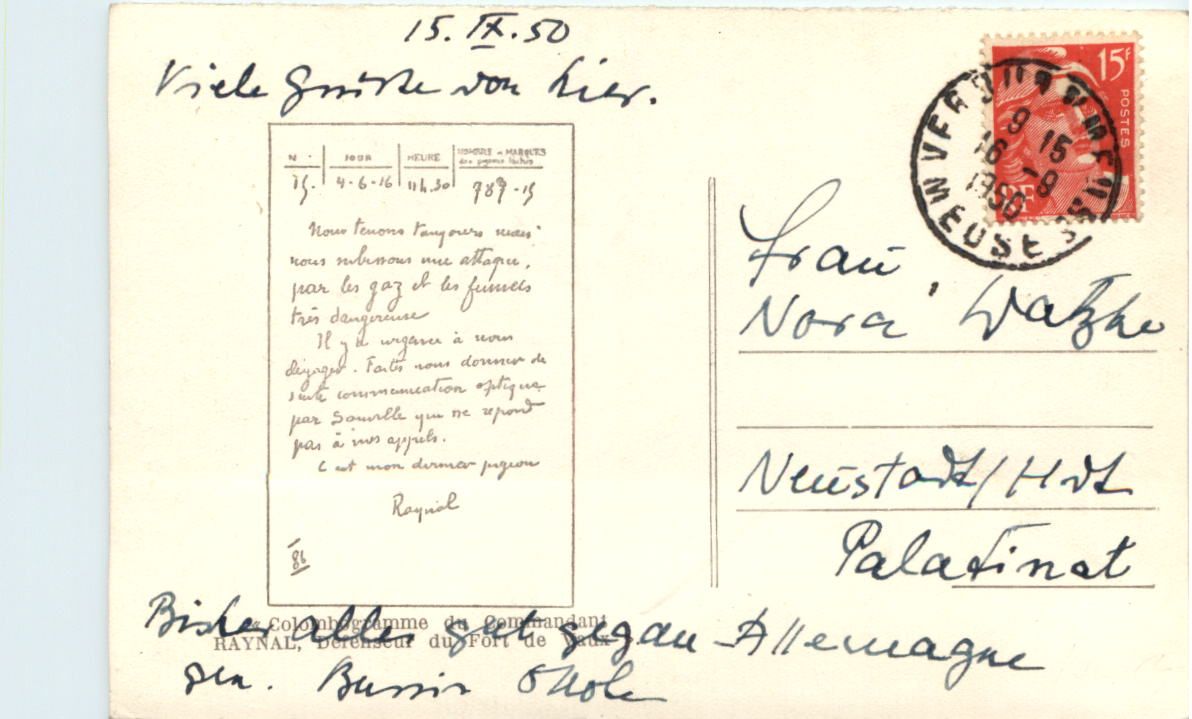 15. IX. 50
Viele Grüsse von hier.
N° JOUR HEURE NOMBRE et MARQUES
des pigeons lâchés
4-6-16 11H.30 787-15
Nous tenons toujours mais
nous subissons une attaque,
par les gaz et les fumées
très dangereuse
Il y a urgence à nous
dégager. Faites nous donner de
suite communication optique
par Souville qui ne répond
pas à nos appels.
C'est mon dernier pigeon
Raynal
« Colombogramme du Commandant
RAYNAL, Défenseur du Fort de Vaux
Bisher alles gut gegan
15F
POSTES
VERDUN Sr MEUSE
9 15
16 -9
1950
MEUSE
Frau
Nora Watzke
Neustadt/Hdt
Palatinat
Allemagne